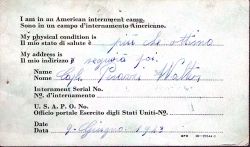 I am in an American internment camp.
Io sono in un campo d'internamento Americano.
My physical condition is
Il mio stato di salute è più che ottimo
My address is
Il mio indirizzo è seguirà poi.
Name
Nome Walter
Internment Serial No.
No. d'internamento
U. S. A. P. O. No.
Officio portale Esercito degli Stati Uniti-No.
Date
Data 9 Giugno 1943